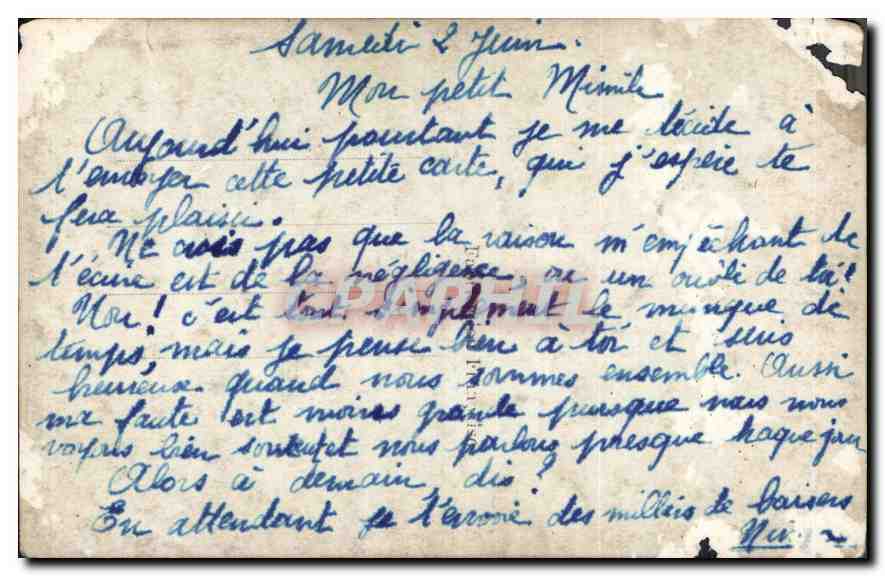 Samedi 2 Juin.
Mon petit Mimile
Aujourd'hui pourtant je me décide à
t'envoyer cette petite carte, qui j'espère te
fera plaisir.
Ne crois pas que la raison m'empêchant de
t'écrire est de la négligence, ou un oubli de toi!
Non! c'est tout simplement le manque de
temps, mais je pense bien à toi et suis
heureuse quand nous sommes ensemble. Aussi
ma faute est moins grande puisque nous nous
voyons bien souvent et nous parlons presque chaque jour
Alors à demain dis?
En attendant je t'envoie des milliers de baisers
CPAPHIL